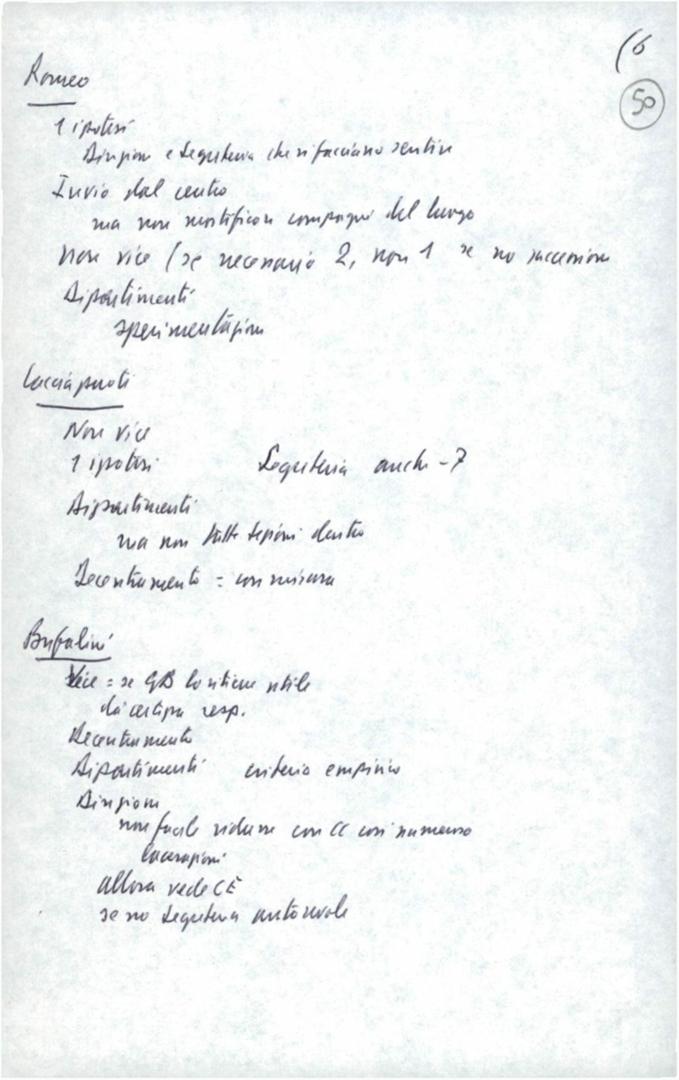 (6
50
Romeo
1 ipotesi
Direzione e Segreteria che si facciano sentire
Invio dal centro
ma non mortificare compagni del luogo
Non vice (se necessario 2, non 1 se no successione
Dipartimenti
sperimentazione
Cacciapuoti
Non vice
1 ipotesi Segreteria anche - 7
Dipartimenti
ma non tutte sezioni dentro
Decentramento = con misura
Bufalini
Vice = se GB lo ritiene utile
da certipu resp.
Decentramento
Dipartimenti criterio empirico
Direzione
non facile ridurre con CC così numeroso
lacerazioni
allora vede CE
se no Segreteria autorevole